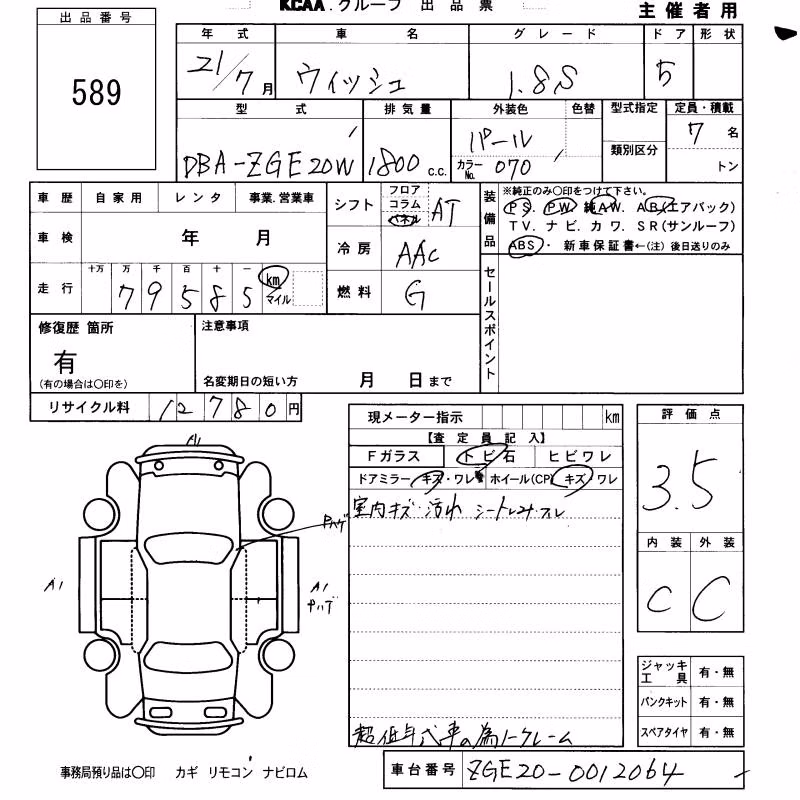 KCAA.グループ 出品票
主催者用
出品番号
589
年式 車名 グレード ドア 形状
21/7月 ウィッシュ 1.8S 5
型式 排気量 外装色 色替 型式指定 定員・積載
DBA-ZGE20W 1800 c.c. パール 7 名
カラーNo. 070 類別区分 トン
車歴 自家用 レンタ 事業.営業車
シフト フロア コラム パネル AT
装備品
※純正のみ○印をつけて下さい。
PS. PW. 純AW. AB(エアバック)
TV. ナビ. カワ. SR(サンルーフ)
ABS・ 新車保証書←(注)後日送りのみ
車検 年 月
冷房 AAC
走行 十万 万 千 百 十 一
79585 km マイル
燃料 G
セールスポイント
修復歴 箇所
有
(有の場合は○印を)
注意事項
名変期日の短い方 月 日まで
リサイクル料 12780円
現メーター指示 km
【査定員記入】
Fガラス トビ石 ヒビワレ
ドアミラー キズ・ワレ ホイール(CP) キズ/ワレ
室内キズ・汚れ シートレみ・スレ
評価点
3.5
内装 外装
C C
A1
Pハゲ
A1
A1
Pハゲ
ジャッキ工具 有・無
パンクキット 有・無
スペアタイヤ 有・無
超低年式車の為ノークレーム
事務局預り品は○印 カギ リモコン ナビロム
車台番号 ZGE20-0012064